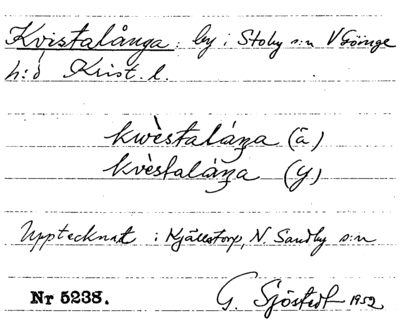 Kvistalånga: by i Stoby s:n V Göinge
h:d Krist. l.
kwèstalánga (ä)
kvèstalánga (y)
Upptecknat i Mjällstorp, N. Sandby s:n
Nr 5238. G. Sjöstedt 1952